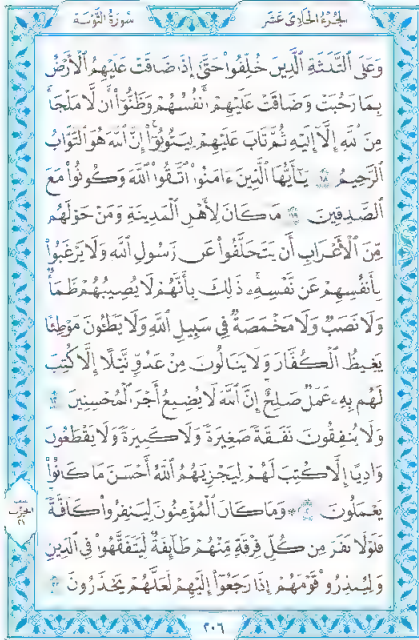 الجزء الحادي عشر
سورة التوبة
وَعَلَى ٱلثَّلَٰثَةِ ٱلَّذِينَ خُلِّفُوا۟ حَتَّىٰٓ إِذَا ضَاقَتْ عَلَيْهِمُ ٱلْأَرْضُ
بِمَا رَحُبَتْ وَضَاقَتْ عَلَيْهِمْ أَنفُسُهُمْ وَظَنُّوٓا۟ أَن لَّا مَلْجَأَ
مِنَ ٱللَّهِ إِلَّآ إِلَيْهِ ثُمَّ تَابَ عَلَيْهِمْ لِيَتُوبُوٓا۟ إِنَّ ٱللَّهَ هُوَ ٱلتَّوَّابُ
ٱلرَّحِيمُ ١١٨ يَٰٓأَيُّهَا ٱلَّذِينَ ءَامَنُوا۟ ٱتَّقُوا۟ ٱللَّهَ وَكُونُوا۟ مَعَ
ٱلصَّٰدِقِينَ ١١٩ مَا كَانَ لِأَهْلِ ٱلْمَدِينَةِ وَمَنْ حَوْلَهُم
مِّنَ ٱلْأَعْرَابِ أَن يَتَخَلَّفُوا۟ عَن رَّسُولِ ٱللَّهِ وَلَا يَرْغَبُوا۟
بِأَنفُسِهِمْ عَن نَّفْسِهِۦ ذَٰلِكَ بِأَنَّهُمْ لَا يُصِيبُهُمْ ظَمَأٌ
وَلَا نَصَبٌ وَلَا مَخْمَصَةٌ فِى سَبِيلِ ٱللَّهِ وَلَا يَطَـُٔونَ مَوْطِئًا
يَغِيظُ ٱلْكُفَّارَ وَلَا يَنَالُونَ مِنْ عَدُوٍّ نَّيْلًا إِلَّا كُتِبَ
لَهُم بِهِۦ عَمَلٌ صَٰلِحٌ إِنَّ ٱللَّهَ لَا يُضِيعُ أَجْرَ ٱلْمُحْسِنِينَ ١٢٠
وَلَا يُنفِقُونَ نَفَقَةً صَغِيرَةً وَلَا كَبِيرَةً وَلَا يَقْطَعُونَ
وَادِيًا إِلَّا كُتِبَ لَهُمْ لِيَجْزِيَهُمُ ٱللَّهُ أَحْسَنَ مَا كَانُوا۟
يَعْمَلُونَ ١٢١ ۞ وَمَا كَانَ ٱلْمُؤْمِنُونَ لِيَنفِرُوا۟ كَآفَّةً
فَلَوْلَا نَفَرَ مِن كُلِّ فِرْقَةٍ مِّنْهُمْ طَآئِفَةٌ لِّيَتَفَقَّهُوا۟ فِى ٱلدِّينِ
وَلِيُنذِرُوا۟ قَوْمَهُمْ إِذَا رَجَعُوٓا۟ إِلَيْهِمْ لَعَلَّهُمْ يَحْذَرُونَ ١٢٢
نصف
الحزب
٢١
٢٠٦